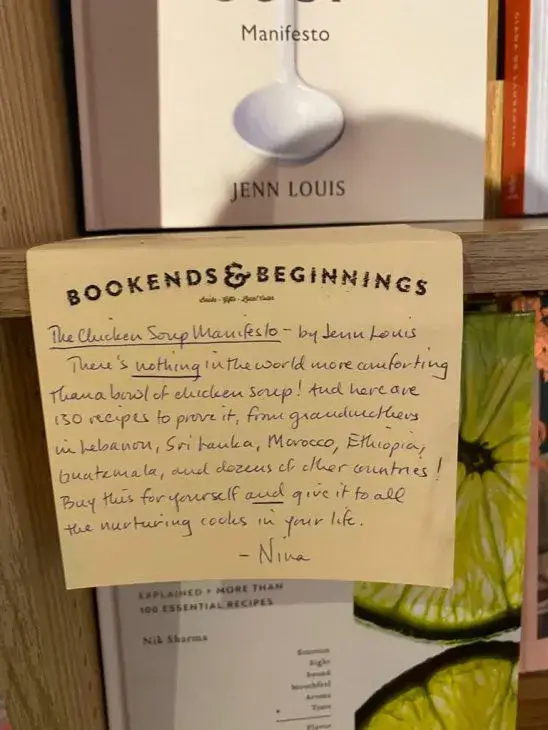 Manifesto
JENN LOUIS
BOOKENDS & BEGINNINGS
Books · Gifts · Local Color
The Chicken Soup Manifesto - by Jenn Louis
There's nothing in the world more comforting
than a bowl of chicken soup! And here are
130 recipes to prove it, from grandmothers
in Lebanon, Sri Lanka, Morocco, Ethiopia,
Guatemala, and dozens of other countries!
Buy this for yourself and give it to all
the nurturing cooks in your life.
- Nina
EXPLAINED + MORE THAN
100 ESSENTIAL RECIPES
Nik Sharma
Emotion
Sight
Sound
Mouthfeel
Aroma
+ Taste
Flavor